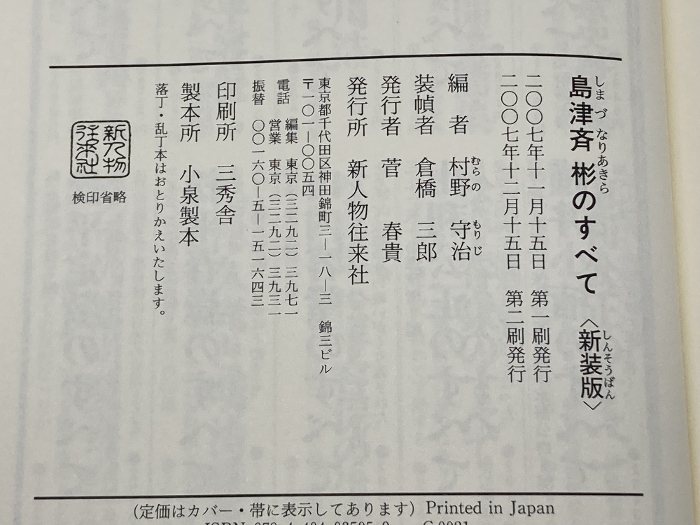 島津斉彬のすべて〈新装版〉
しまづなりあきら しんそうばん
二〇〇七年十一月十五日 第一刷発行
二〇〇七年十二月十五日 第二刷発行
編者 村野守治
むらの もりじ
装幀者 倉橋三郎
発行者 菅春貴
発行所 新人物往来社
東京都千代田区神田錦町三―一八―三 錦三ビル
〒一〇一―〇〇五四
電話 編集 東京(三二九二)三九七一
営業 東京(三二九二)三九三一
振替 〇〇一六〇―五―一五一六四三
印刷所 三秀舎
製本所 小泉製本
落丁・乱丁本はおとりかえいたします。
新人物往来社
検印省略
(定価はカバー・帯に表示してあります) Printed in Japan